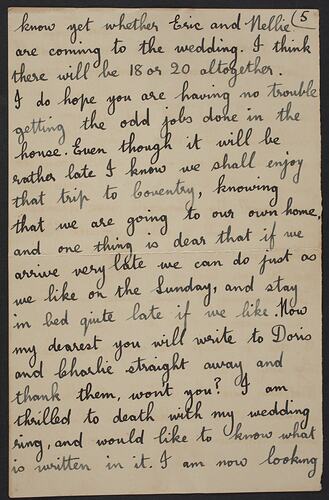 (5
know yet whether Eric and Nellie
are coming to the wedding. I think
there will be 18 or 20 altogether.
I do hope you are having no trouble
getting the odd jobs done in the
house. Even though it will be
rather late I know we shall enjoy
that trip to Coventry, knowing
that we are going to our own home,
and one thing is dear that if we
arrive very late we can do just as
we like on the Sunday, and stay
in bed quite late if we like. Now
my dearest you will write to Doris
and Charlie straight away and
thank them, wont you? I am
thrilled to death with my wedding
ring, and would like to know what
is written in it. I am now looking